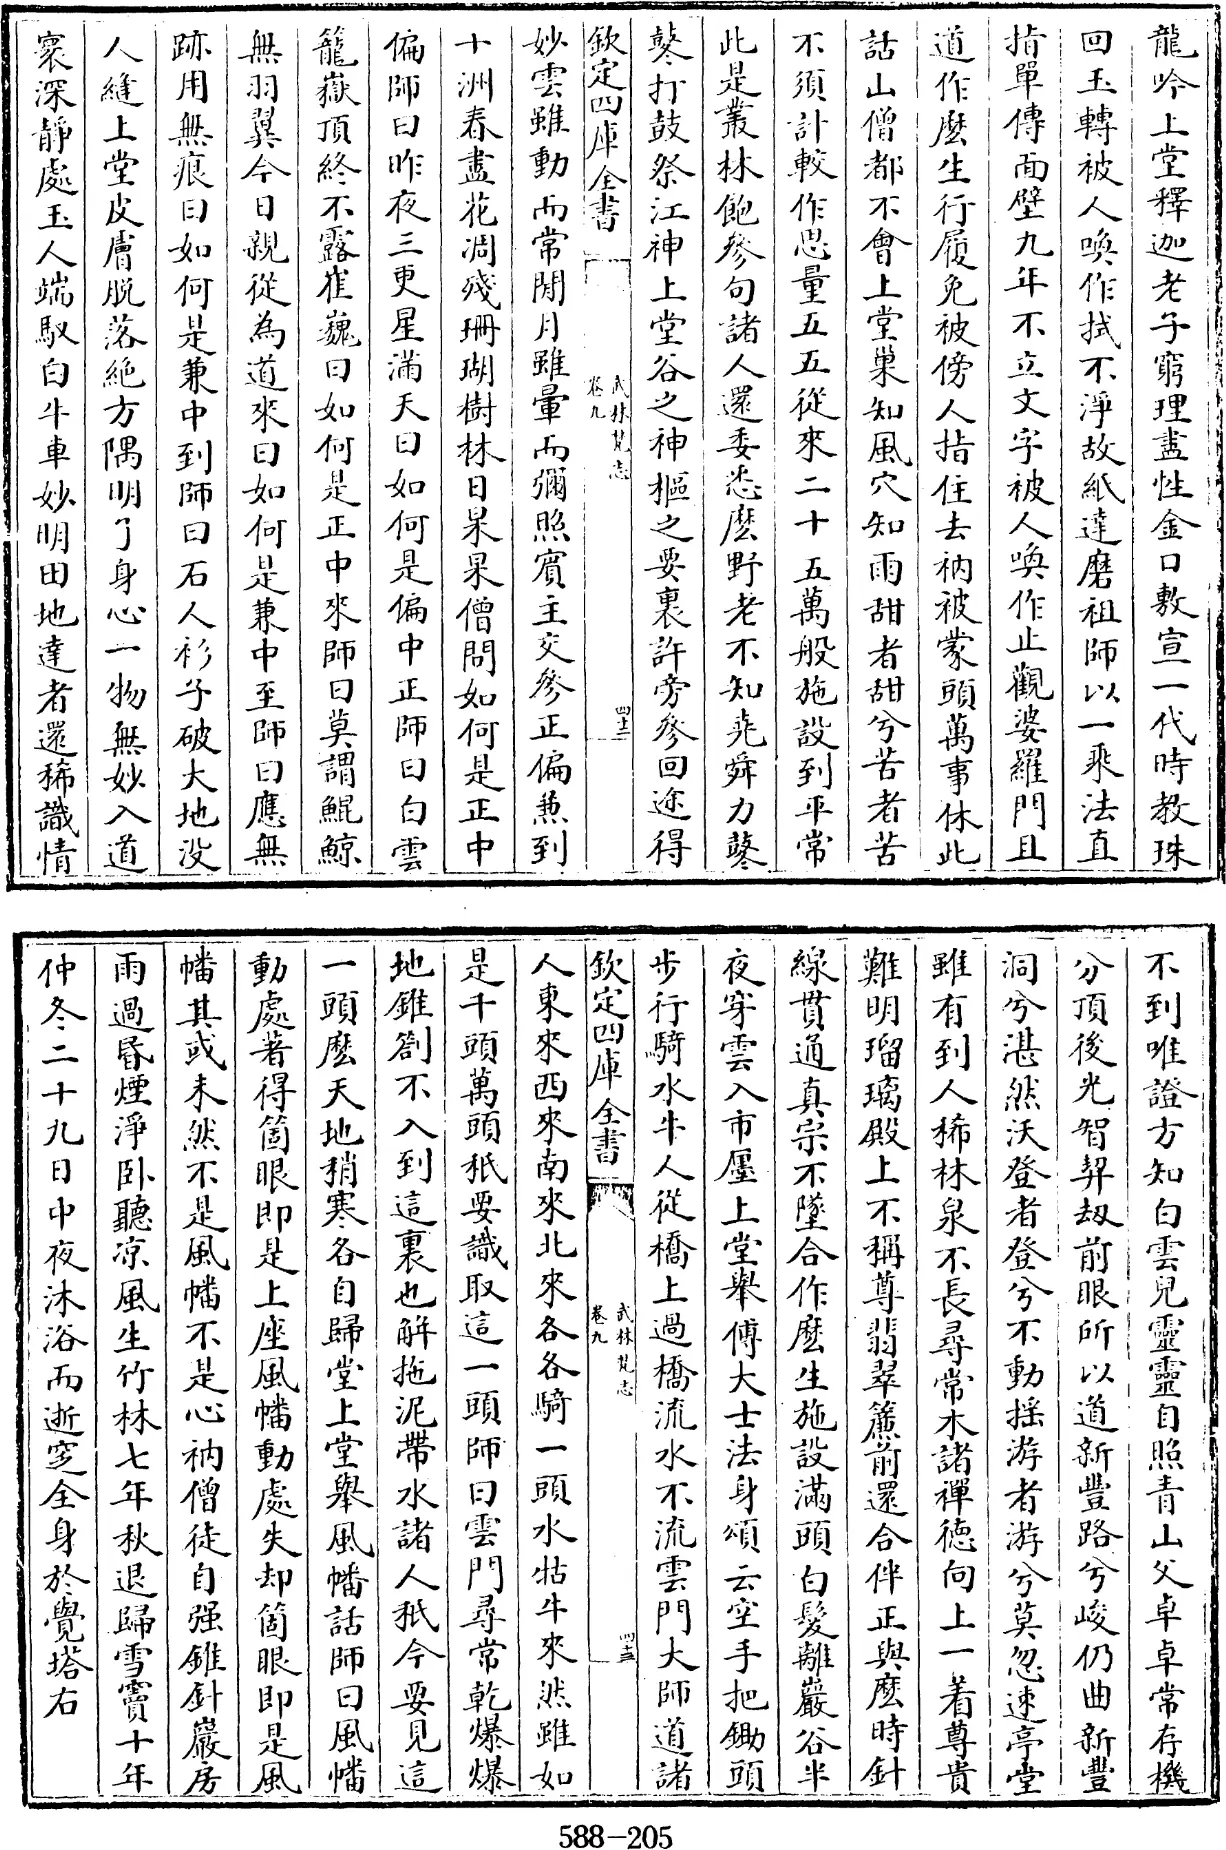 龍吟上堂釋迦老子窮理盡性金口敷宣一代時教珠
回玉轉被人喚作拭不淨故紙達磨祖師以一乘法直
指單傳面壁九年不立文字被人喚作止觀婆羅門且
道作麽生行履免被傍人指住去衲被蒙頭萬事休此
話山僧都不會上堂巢知風穴知雨甜者甜兮苦者苦
不須計較作思量五五從來二十五萬般施設到平常
此是叢林飽參句諸人還委悉麽野老不知堯舜力鼕
鼕打鼓祭江神上堂谷之神樞之要裏許旁參回途得
欽定四庫全書
武林梵志
卷九
四十二
妙雲雖動而常閒月雖暈而彌照賓主交參正偏兼到
十洲春盡花凋殘珊瑚樹林日杲杲僧問如何是正中
偏師曰昨夜三更星滿天曰如何是偏中正師曰白雲
籠嶽頂終不露崔巍曰如何是正中來師曰莫謂鯤鯨
無羽翼今日親從為道來曰如何是兼中至師曰應無
跡用無痕曰如何是兼中到師曰石人衫子破大地没
人縫上堂皮膚脱落絶方隅明了身心一物無妙入道
寰深靜處玉人端馭白牛車妙明田地達者還稀識情
不到唯證方知白雲兒靈靈自照青山父卓卓常存機
分頂後光智契劫前眼所以道新豐路兮峻仍曲新豐
洞兮湛然沃登者登兮不動揺游者游兮莫忽速亭堂
雖有到人稀林泉不長尋常木諸禪徳向上一着尊貴
難明瑠璃殿上不稱尊翡翠簾前還合伴正與麽時針
線貫通真宗不墜合作麽生施設滿頭白髮離巖谷半
夜穿雲入市㕓上堂舉傅大士法身頌云空手把鋤頭
步行騎水牛人從橋上過橋流水不流雲門大師道諸
欽定四庫全書
武林梵志
卷九
四十三
人東來西來南來北來各各騎一頭水牯牛來然雖如
是千頭萬頭秪要識取這一頭師曰雲門尋常乾爆爆
地錐劄不入到這裏也解拖泥帶水諸人秪今要見這
一頭麽天地稍寒各自歸堂上堂舉風幡話師曰風幡
動處著得箇眼即是上座風幡動處失却箇眼即是風
幡其或未然不是風幡不是心衲僧徒自强錐針巖房
雨過昏煙淨卧聽凉風生竹林七年秋退歸雪竇十年
仲冬二十九日中夜沐浴而逝窆全身於覺塔右
588-205